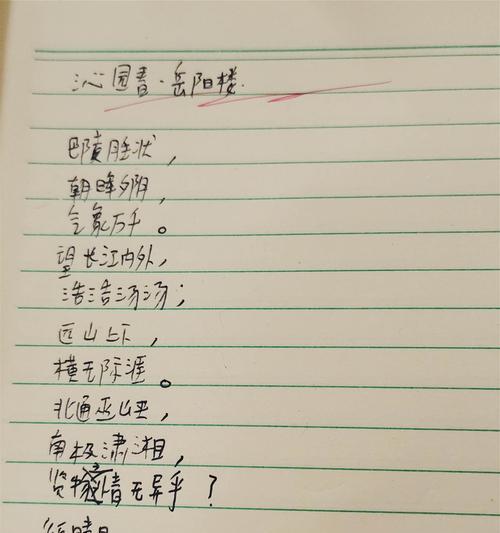 沁园春·岳阳楼
巴陵胜状，
朝晖夕阴，
气象万千。
望长江内外，
浩浩汤汤；
远山上下，
横无际涯。
北通巫峡，
南极潇湘，
览物之情无异乎？